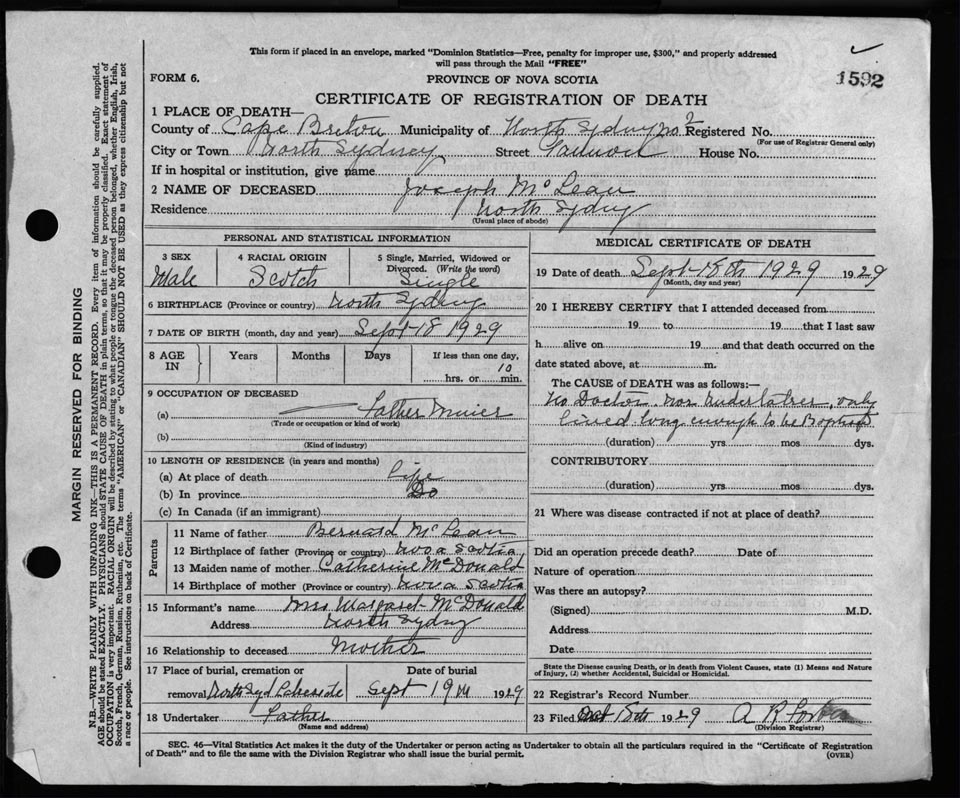 This form if placed in an envelope, marked "Dominion Statistics—Free, penalty for improper use, $300," and properly addressed
will pass through the Mail "FREE"
1592
FORM 6.
PROVINCE OF NOVA SCOTIA
CERTIFICATE OF REGISTRATION OF DEATH
1 PLACE OF DEATH—
County of Cape Breton Municipality of North Sydney no 2 Registered No.
(For use of Registrar General only)
City or Town North Sydney Street House No.
If in hospital or institution, give name
2 NAME OF DECEASED Joseph McLean
Residence North Sydney
(Usual place of abode)
PERSONAL AND STATISTICAL INFORMATION
3 SEX 4 RACIAL ORIGIN 5 Single, Married, Widowed or
Divorced. (Write the word)
Male Scotch Single
6 BIRTHPLACE (Province or country) North Sydney
7 DATE OF BIRTH (month, day and year) Sept 18 1929
8 AGE IN Years Months Days If less than one day,
hrs. or 10 min.
9 OCCUPATION OF DECEASED
(a) Father Miner
(Trade or occupation or kind of work)
(b)
(Kind of industry)
10 LENGTH OF RESIDENCE (in years and months)
(a) At place of death life
(b) In province Do
(c) In Canada (if an immigrant)
Parents
11 Name of father Bernard McLean
12 Birthplace of father (Province or country) Nova Scotia
13 Maiden name of mother Catherine McDonald
14 Birthplace of mother (Province or country) Nova Scotia
15 Informant's name Mrs Margaret McDonald
Address North Sydney
16 Relationship to deceased Mother
17 Place of burial, cremation or Date of burial
removal North Syd Lakeside Sept 19th 1929
18 Undertaker Father
(Name and address)
MEDICAL CERTIFICATE OF DEATH
19 Date of death Sept 18th 1929 1929
(Month, day and year)
20 I HEREBY CERTIFY that I attended deceased from
19 to 19 that I last saw
h alive on 19 and that death occurred on the
date stated above, at m.
The CAUSE of DEATH was as follows:
No Doctor nor Undertaker, only
lived long enough to be Baptised
(duration) yrs. mos dys.
CONTRIBUTORY
(duration) yrs. mos. dys.
21 Where was disease contracted if not at place of death?
Did an operation precede death? Date of
Nature of operation
Was there an autopsy?
(Signed) M.D.
Address
Date
State the Disease causing Death, or in death from Violent Causes, state (1) Means and Nature
of Injury, (2) whether Accidental, Suicidal or Homicidal.
22 Registrar's Record Number
23 Filed 18th 1929 A R
(Division Registrar)
SEC. 46—Vital Statistics Act makes it the duty of the Undertaker or person acting as Undertaker to obtain all the particulars required in the "Certificate of Registration
of Death" and to file the same with the Division Registrar who shall issue the burial permit. (OVER)
MARGIN RESERVED FOR BINDING
N.B.—WRITE PLAINLY WITH UNFADING INK—THIS IS A PERMANENT RECORD. Every item of information should be carefully supplied.
AGE should be stated EXACTLY. PHYSICIANS should STATE CAUSE OF DEATH in plain terms, so that it may be properly classified. Exact statement of
OCCUPATION is very important. RACIAL ORIGIN will be described by stating to what people or tongue the deceased person belonged, whether English, Irish,
Scotch, French, German, Russian, Ruthenian, etc. The terms "AMERICAN" or "CANADIAN" SHOULD NOT BE USED as they express citizenship but not
a race or people. See instructions on back of Certificate.